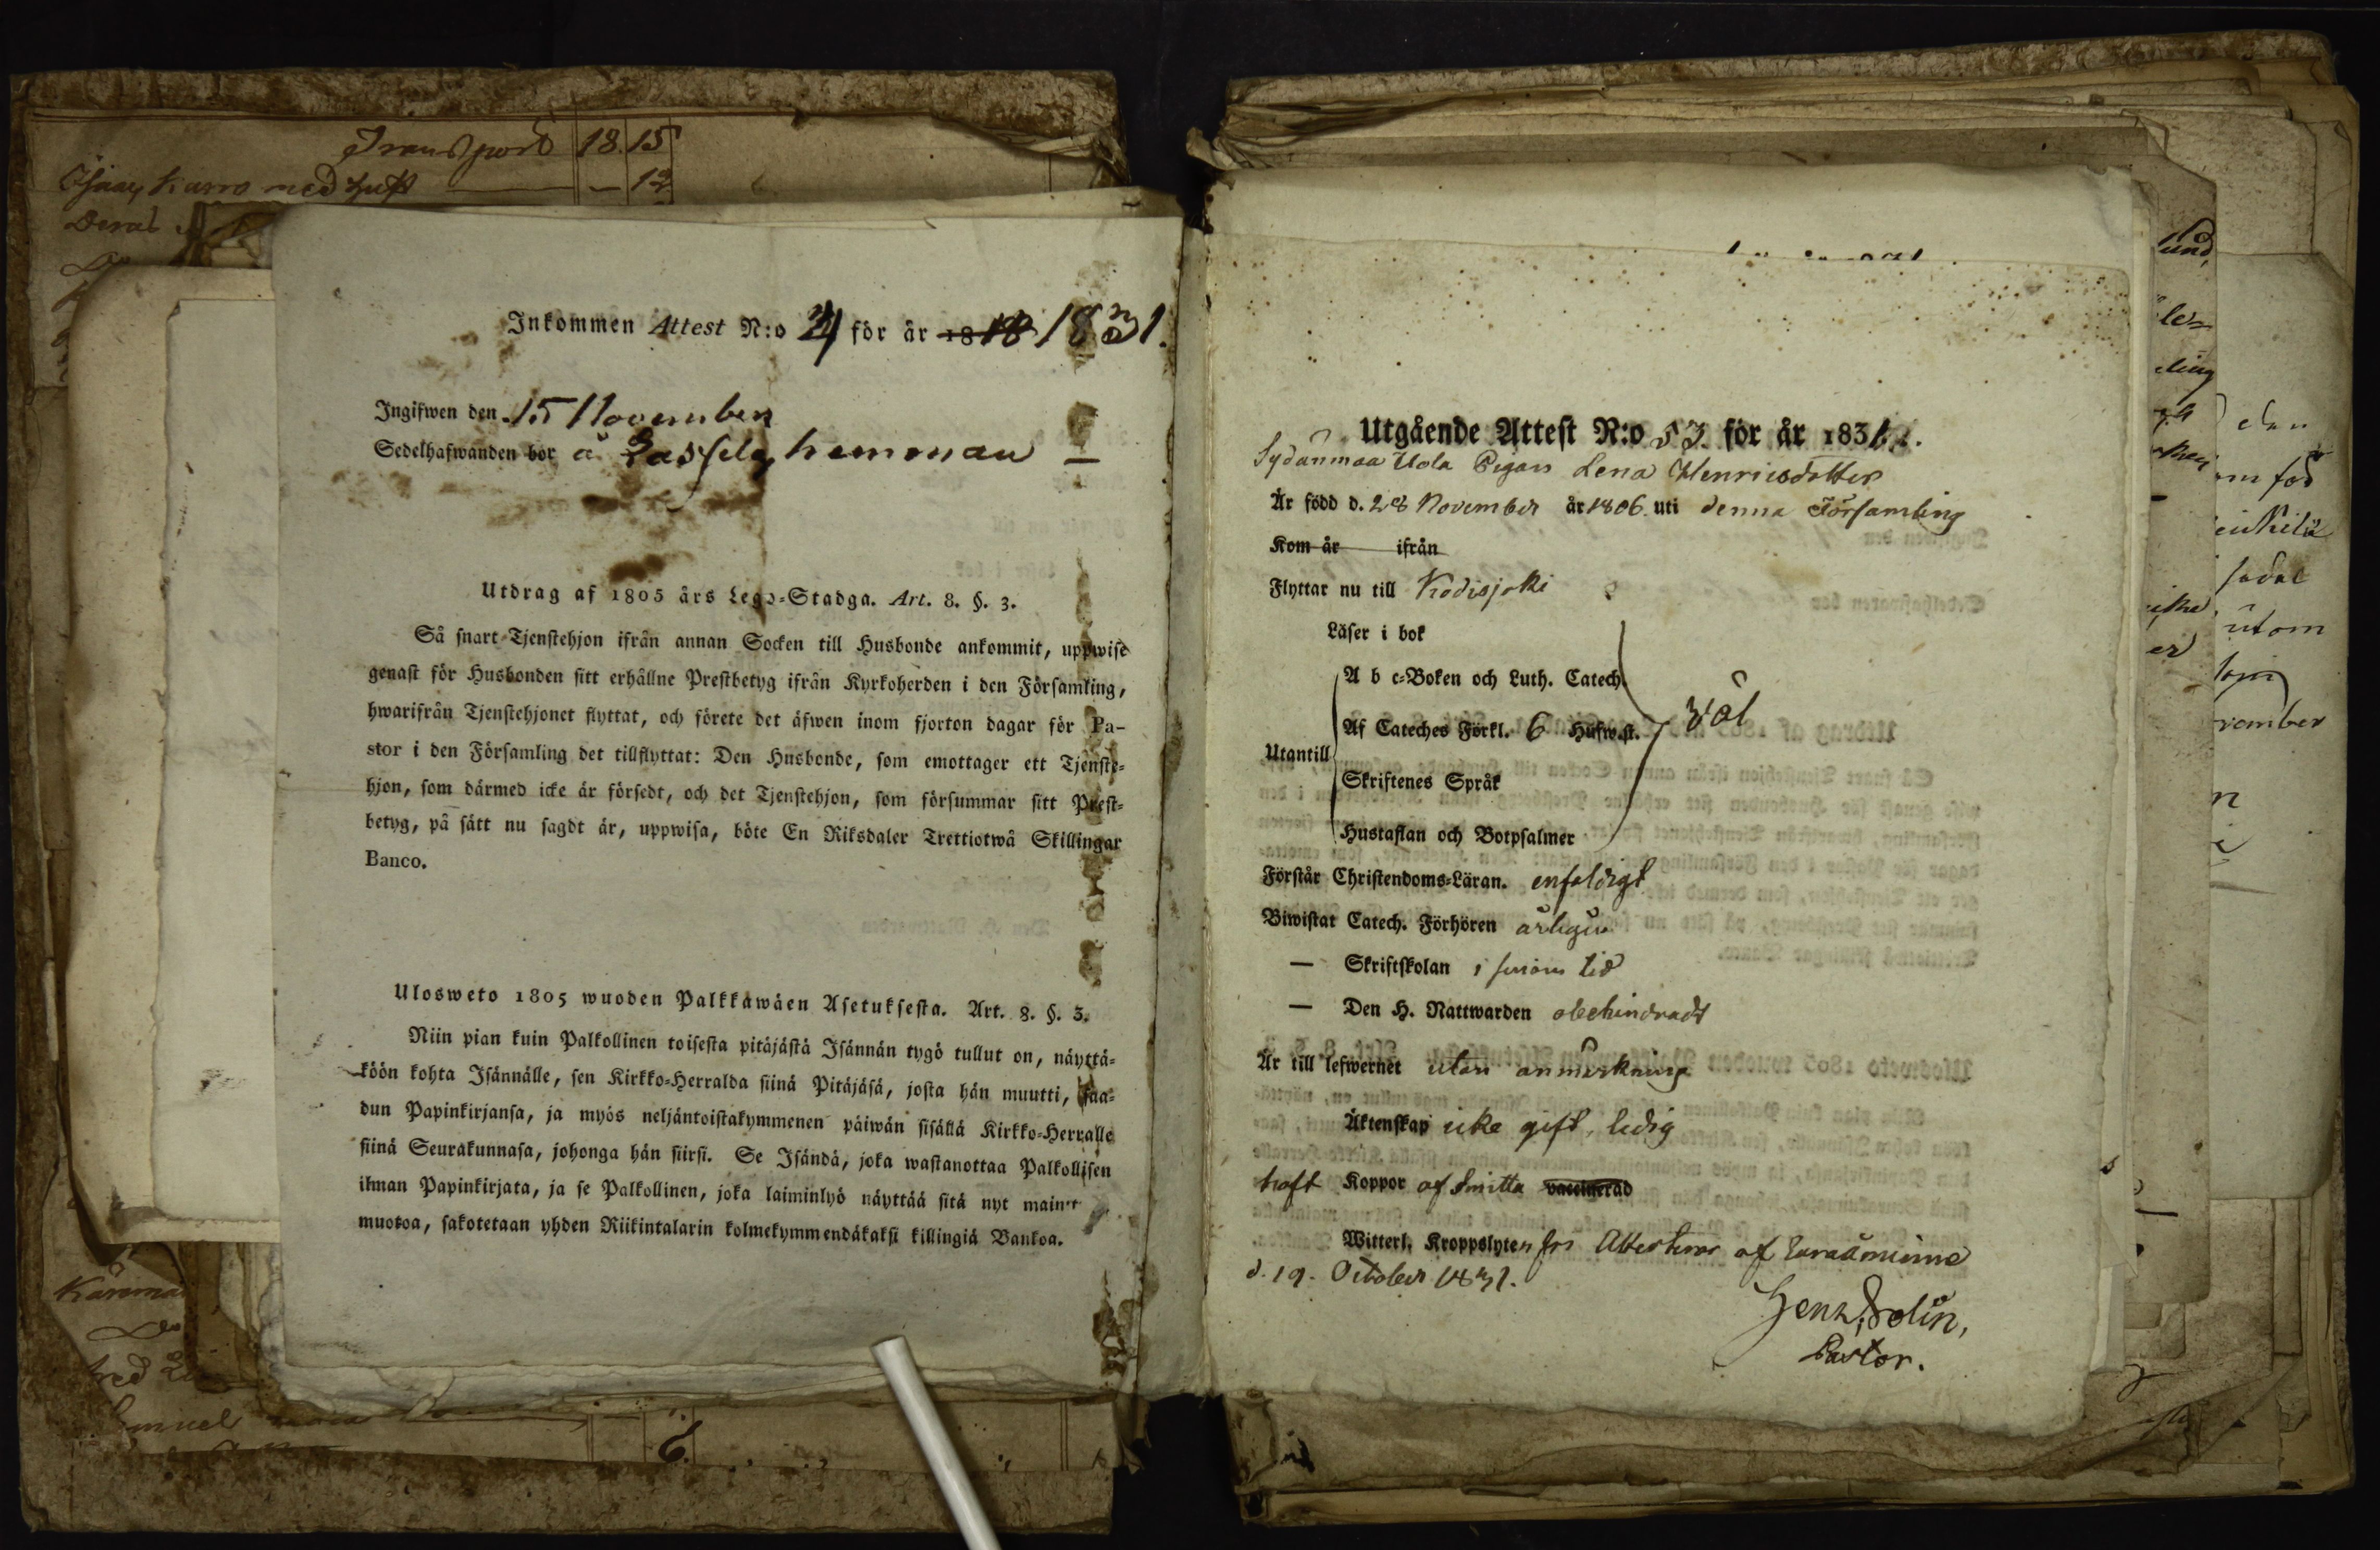 Transport 18. 15
Karro med — 12
Inkommen Attest N:o 21 för år 1818 1831.
Ingifwen den 15 November
Sedelhafwanden bor å hemman
Utdrag af 1805 års Lego-Stadga. Art. 8. §. 3.
Så snart Tjenstehjon ifrån annan Socken till Husbonde ankommit, uppwise
genast för Husbonden sitt erhållne Prestbetyg ifrån Kyrkoherden i den Församling,
hwarifrån Tjenstehjonet flyttat, och förete det äfwen inom fjorton dagar för Pa-
stor i den Församling det tillflyttat: Den Husbonde, som emottager ett Tjenste-
hjon, som därmed icke är försedt, och det Tjenstehjon, som försummar sitt Prest-
betyg, på sätt nu sagdt är, uppwisa, böte En Riksdaler Trettiotwå Skillingar
Banco.
Ulosweto 1805 wuoden Palkkawäen Asetuksesta. Art. 8. §. 3.
Niin pian kuin Palkollinen toisesta pitäjästä Isännän tygö tullut on, näyttä-
köön kohta Isännälle, sen Kirkko-Herralda siinä Pitäjäsä, josta hän muutti, saa-
dun Papinkirjansa, ja myös neljäntoistakymmenen päiwän sisällä Kirkko-Herralle
siinä Seurakunnasa, johonga hän siirsi. Se Isändä, joka wastanottaa Palkollisen
ilman Papinkirjata, ja se Palkollinen, joka laiminlyö näyttää sitä nyt mainit
muotoa, sakotetaan yhden Riikintalarin kolmekymmendäkaksi killingiä Bankoa.
6.
Utgående Attest N:o 53 för år 1831.
Sydänmaa Uola Pigan Lena Henricsdotter
Är född d. 28 November år 1806 uti denna Församling
Kom år ifrån
Flyttar nu till Kodisjoki
Läser i bok
A b c-Boken och Luth. Catech.
Af Cateches Förkl. 6 Hufw.st. väl
Utantill
Skriftenes Språk
Hustaflan och Botpsalmer
Förstår Christendoms-Läran. enfaldigt
Biwistat Catech. Förhören årligen
— Skriftskolan i sinom tid
— Den H. Nattwarden obehindradt
Är till lefwernet utan anmärkning
Äktenskap icke gift, ledig
haft Koppor af Smitta vaccinerad
Witterl. Kroppslyten fri Attesterar af Euraåminne
d. 19. October 1831.
Henr. Solin,
Pastor.